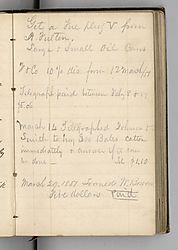 Get a Fire plug V from
A. Fulton.
Large & Small Oil Cans
T & Co 10 % dis. from 12 March/
Telegraph paid between July 8 & 17
$5.06
March 14 Telegraphed Johnson &
Smith to buy 300 Bales Cotton
immediately & answer if it can
be done — $1.10
March 29, 1851 Loaned W. Brown
Five dollars Paid